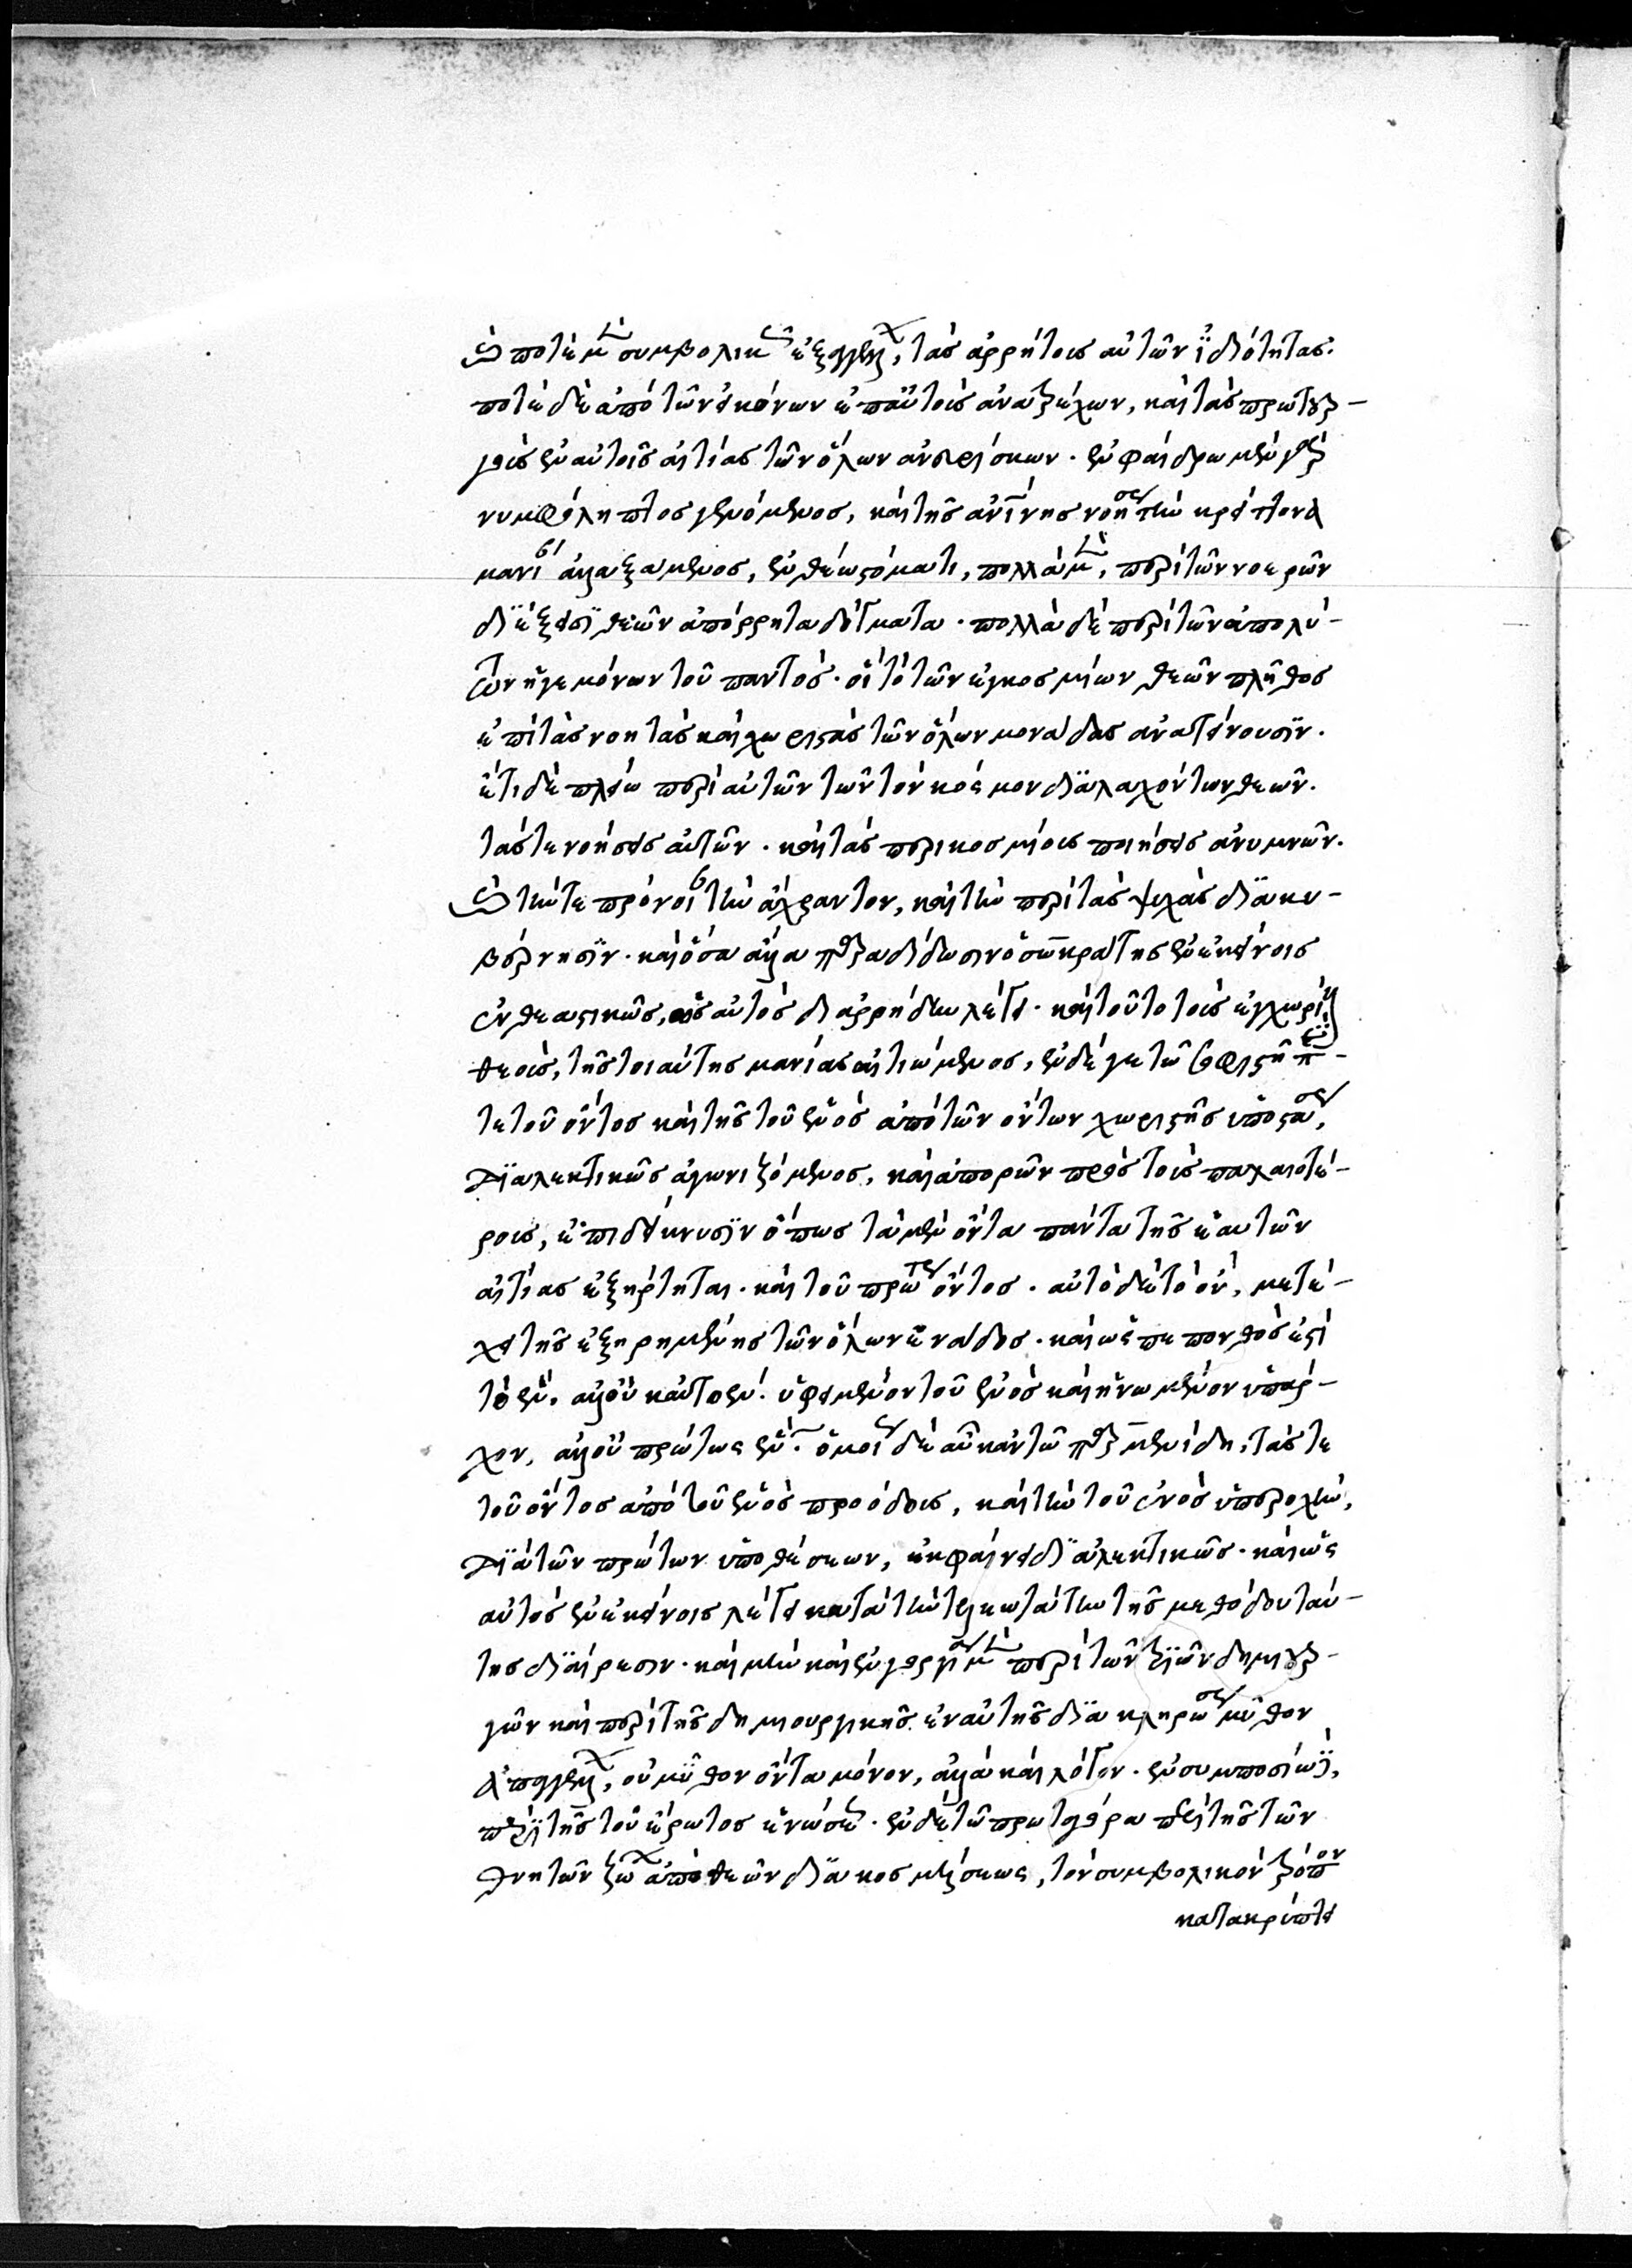 καὶ ποτὲ μὲν συμβολικῶς ἐξαγγέλλει, τὰς ἀρρήτους αὐτῶν ἰδιότητας·
ποτὲ δὲ ἀπὸ τῶν εἰκόνων ἐπ' αὐτοὺς ἀνατρέχων, καὶ τὰς πρωτουρ-
γοὺς ἐν αὐτοῖς αἰτίας τῶν ὅλων ἀνευρίσκων· ἐν φαίδρω μὲν γὰρ
νυμφόληπτος γενόμενος, καὶ τῆς ἀνθρωπίνης νοήσεως τὴν κρείττονα
μανίαν ἀλλαξάμενος, ἐνθέω στόματι, πολλὰ μὲν, περὶ τῶν νοερῶν
διέξεισι θεῶν ἀπόρρητα δόγματα· πολλὰ δὲ περὶ τῶν ἀπολύ-
των ἡγεμόνων τοῦ παντός· οἳ τὸ τῶν ἐγκοσμίων θεῶν πλῆθος
ἐπὶ τὰς νοητὰς καὶ χωριστὰς τῶν ὅλων μονάδας ἀνατείνουσιν·
ἔτι δὲ πλείω περὶ αὐτῶν τῶν τὸν κόσμον διαλαχόντων θεῶν·
τάς τε νοήσεις αὐτῶν· καὶ τὰς περικοσμίους ποιήσεις ἀνυμνῶν·
καὶ τήν τε πρόνοιαν τὴν ἄχραντον, καὶ τὴν περὶ τὰς ψυχὰς διακυ-
βέρνησιν· καὶ ὅσα ἄλλα παραδίδωσιν ὁ σωκράτης ἐν ἐκείνοις
ἐνθεαστικῶς, ὡς αὐτὸς διαρρήδην λέγει· καὶ τούτο τοὺς ἐγχωρίους
θεοὺς, τῆς τοιαύτης μανίας αἰτιώμενος, ἐν δέ γε τῶ σοφιστῆ περί
τε τοῦ ὄντος καὶ τῆς τοῦ ἑνὸς ἀπὸ τῶν ὄντων χωριστῆς ὑποστάσεως,
διαλεκτικῶς ἀγωνιζόμενος, καὶ ἀπορῶν πρὸς τοὺς παλαιοτέ-
ρους, ἐπιδείκνυσιν ὅπως τὰ μὲν ὄντα πάντα τῆς ἑαυτῶν
αἰτίας ἐξήρτηται· καὶ τοῦ πρώτως ὄντος· αὐτὸ δὲ τὸ ὂν, μετέ-
χει τῆς ἐξηρημένης τῶν ὅλων ἑνάδος· καὶ ὡς πεπονθός ἐστι
τὸ ἓν, ἀλλ' οὐκ αὐτοέν· ὑφειμένον τοῦ ἑνὸς καὶ ἡνωμένον ὑπάρ-
χον, ἀλλ' οὐ πρώτως ἕν· ὁμοίως δὲ αὖ κἀν τῶ παρμενίδη, τάς τε
τοῦ ὄντος ἀπὸ τοῦ ἑνὸς προόδους, καὶ τὴν τοῦ ἑνὸς ὑπεροχὴν,
διὰ τῶν πρώτων ὑποθέσεων, ἐκφαίνει διαλεκτικῶς· καὶ ὡς
αὐτὸς ἐν ἐκείνοις λέγει κατὰ τὴν τελεωτάτην τῆς μεθόδου ταύ-
της διαίρεσιν· καὶ μὴν καὶ ἐν γοργία μὲν περὶ τῶν τριῶν δημιουρ-
γῶν καὶ περὶ τῆς δημιουργικῆς ἐν αὐτῆς διακληρώσεως μῦθον
ἀπαγγέλλει, οὐ μῦθον ὄντα μόνον, ἀλλὰ καὶ λόγον· ἐν συμποσίω δὲ,
περὶ τῆς τοῦ ἔρωτος ἑνώσεως· ἐν δὲ τῶ πρωταγόρα περὶ τῆς τῶν
θνητῶν ζώων ἀπὸ θεῶν διακοσμήσεως, τὸν συμβολικὸν τρόπον
κατακρύπτει